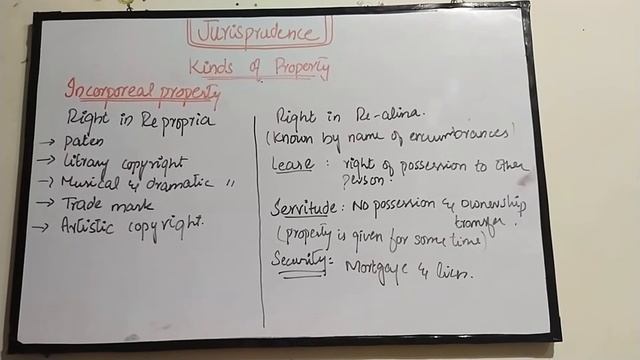 Jurisprudence
Kinds of Property
Incorporeal property
Right in Re propria
→ paten
→ litrary copyright
→ Musical & dramatic "
→ Trade mark
→ Artistic copyright.
Right in Re-alina.
(Known by name of encumbrances)
Lease: right of possession to other
person.
Servitude: No possession & ownership
transfer.
(property is given for some time)
Security:= Mortgage & liens.